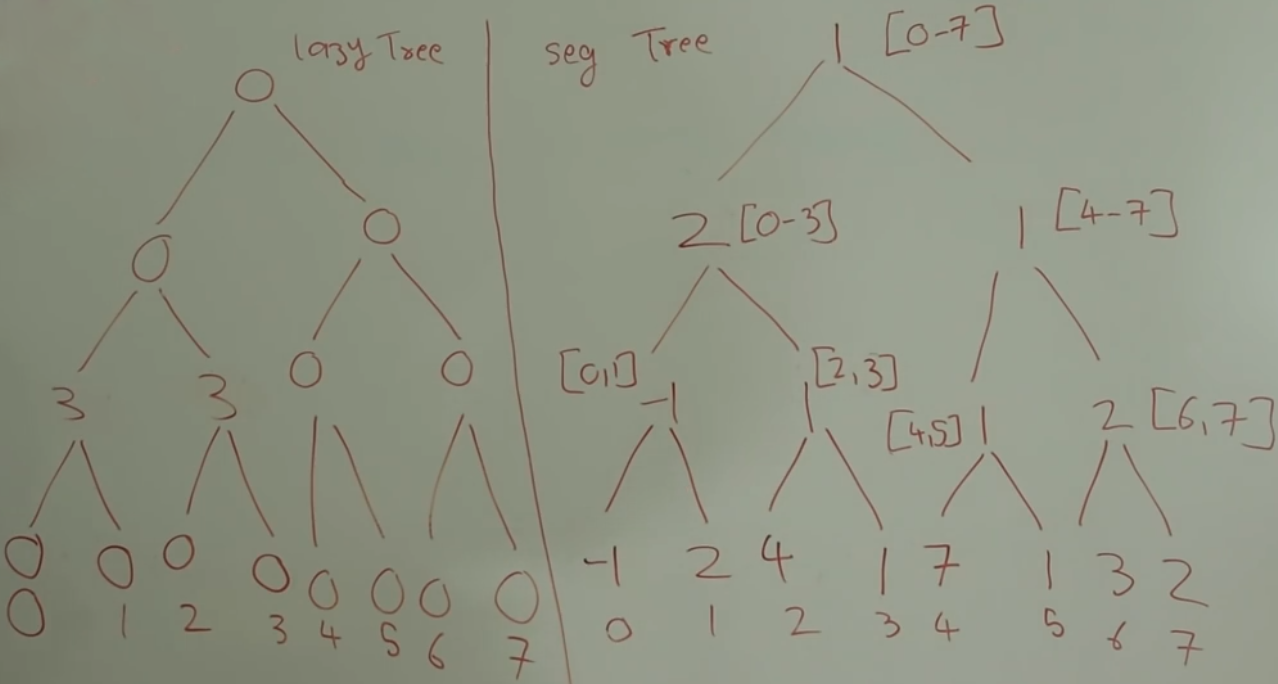 lazy Tree
0
0 0
3 3 0 0
0 0 0 0 0 0 0 0
0 1 2 3 4 5 6 7
seg Tree
1 [0-7]
2 [0-3] 1 [4-7]
[0,1] -1 1 [2,3] [4,5] 1 2 [6,7]
-1 2 4 1 7 1 3 2
0 1 2 3 4 5 6 7